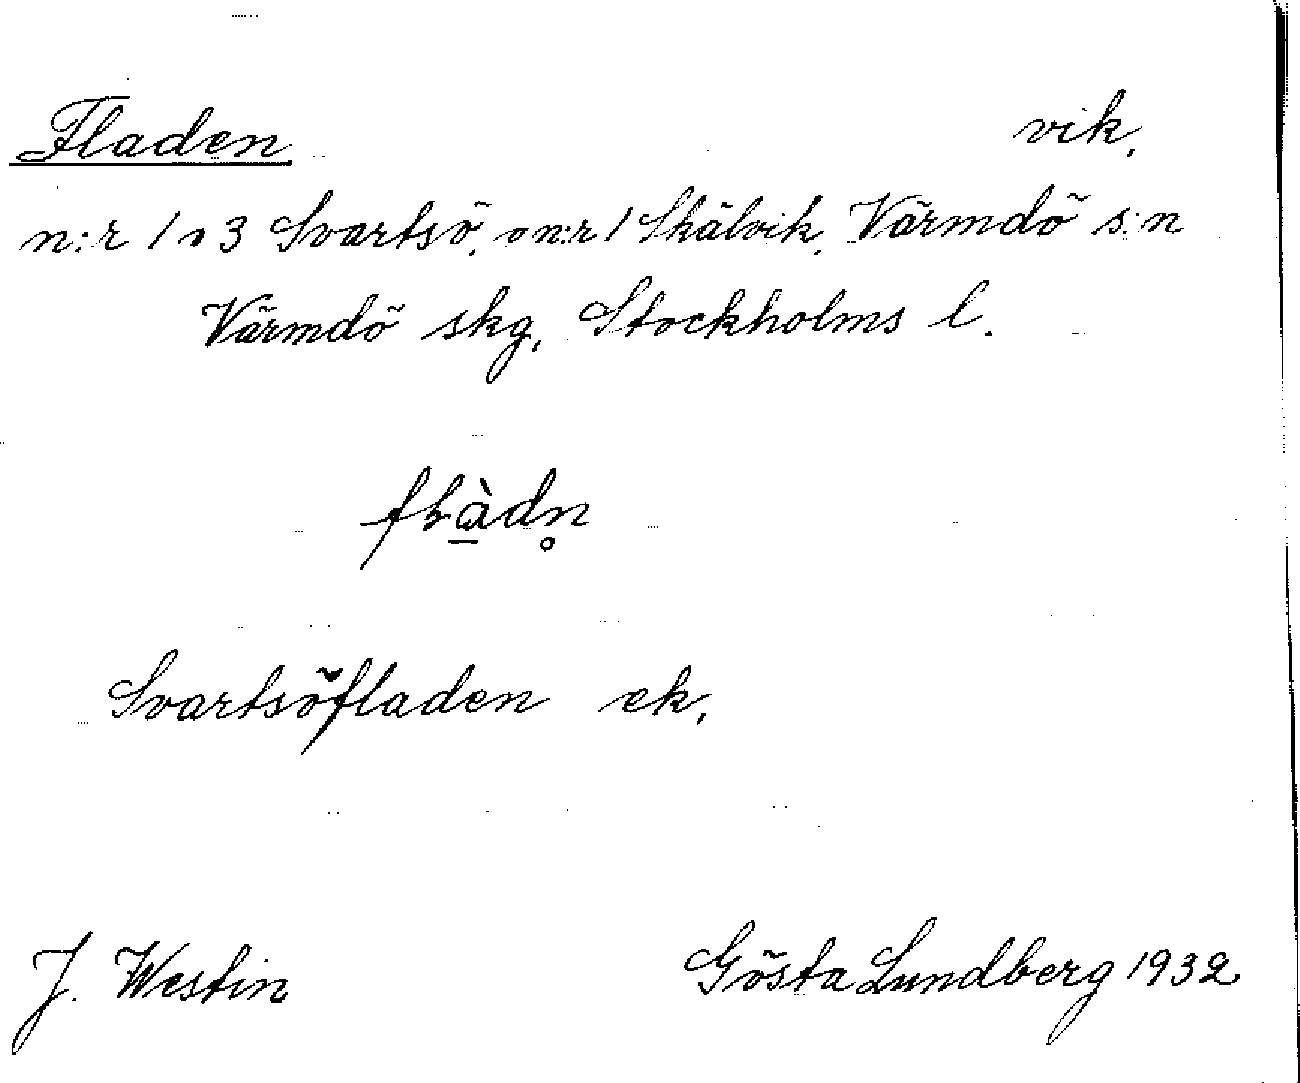 Fladen vik.
n:r 1 o 3 Svartsö, o n:r 1 Skälvik, Värmdö s:n
Värmdö skg, Stockholms l.
flàdn̥
Svartsöfladen ek.
J. Westin Gösta Lundberg 1932